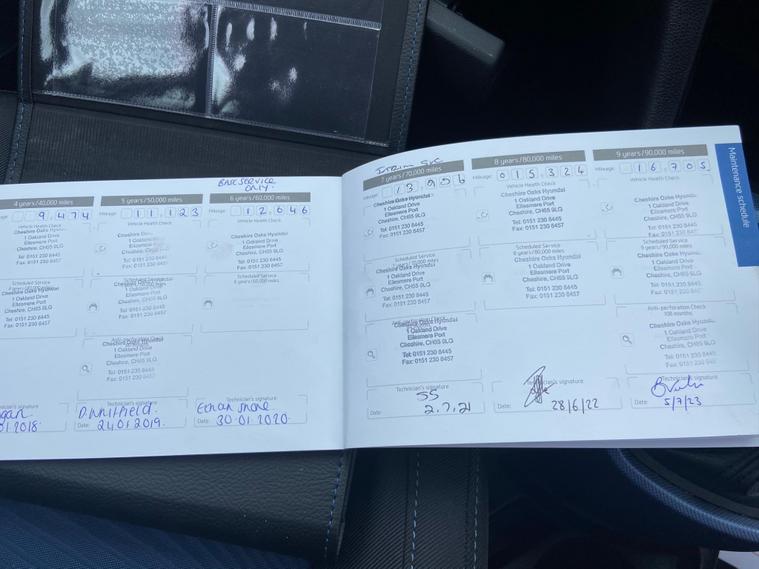 4 years/40,000 miles
9,474
Vehicle Health Check
Cheshire Oaks
1 Oakland Drive
Ellesmere Port
Cheshire, CH65 9LG
Tel: 0151 230 8445
Fax: 0151 230 8457
Scheduled Service
1 Oakland Drive
Ellesmere Port
Cheshire, CH65 9LG
Tel: 0151 230 8445
Fax: 0151 230 8457
Technician's signature
2018.
5 years/50,000 miles
Mileage: 11,123
Vehicle Health Check
1 Oakland Drive
Ellesmere Port
Cheshire, CH65 9LG
Tel: 0151 230 8445
Fax: 0151 230 8457
Scheduled Service
1 Oakland Drive
Ellesmere Port
Cheshire, CH65 9LG
Tel: 0151 230 8445
Fax: 0151 230 8457
1 Oakland Drive
Ellesmere Port
Cheshire, CH65 9LG
Tel: 0151 230 8445
Fax: 0151 230 8457
Technician's signature
D.Whitfield.
Date: 24.01.2019.
BASE SERVICE
ONLY.
6 years/60,000 miles
Mileage: 12,646
Vehicle Health Check
Cheshire Oaks Hyundai
1 Oakland Drive
Ellesmere Port
Cheshire, CH65 9LG
Tel: 0151 230 8445
Fax: 0151 230 8457
Scheduled Service
6 years/60,000 miles
Technician's signature
Date: 30.01.2020.
7 years/70,000 miles
Mileage: 13,956
Cheshire Oaks Hyundai
1 Oakland Drive
Ellesmere Port
Cheshire, CH65 9LG
Tel: 0151 230 8445
Fax: 0151 230 8457
Scheduled Service
Cheshire Oaks Hyundai
1 Oakland Drive
Ellesmere Port
Cheshire, CH65 9LG
Tel: 0151 230 8445
Fax: 0151 230 8457
Cheshire Oaks Hyundai
1 Oakland Drive
Ellesmere Port
Cheshire, CH65 9LG
Tel: 0151 230 8445
Fax: 0151 230 8457
Technician's signature
Date: 2.7.21
8 years/80,000 miles
Mileage: 015,324
Vehicle Health Check
Cheshire Oaks Hyundai
1 Oakland Drive
Ellesmere Port
Cheshire, CH65 9LG
Tel: 0151 230 8445
Fax: 0151 230 8457
Scheduled Service
Cheshire Oaks Hyundai
1 Oakland Drive
Ellesmere Port
Cheshire, CH65 9LG
Tel: 0151 230 8445
Fax: 0151 230 8457
Technician's signature
Date: 28/6/22
9 years/90,000 miles
Mileage: 16,705
Vehicle Health Check
Cheshire Oaks Hyundai
1 Oakland Drive
Ellesmere Port
Cheshire, CH65 9LG
Tel: 0151 230 8445
Fax: 0151 230 8457
Scheduled Service
9 years/90,000 miles
Cheshire Oaks Hyundai
1 Oakland Drive
Ellesmere Port
Cheshire, CH65 9LG
Tel: 0151 230 8445
Fax: 0151 230 8457
Anti-perforation Check
108 months
Cheshire Oaks Hyundai
1 Oakland Drive
Ellesmere Port
Cheshire, CH65 9LG
Tel: 0151 230 8445
Fax: 0151 230 8457
Technician's signature
Date: 5/7/23
Maintenance schedule